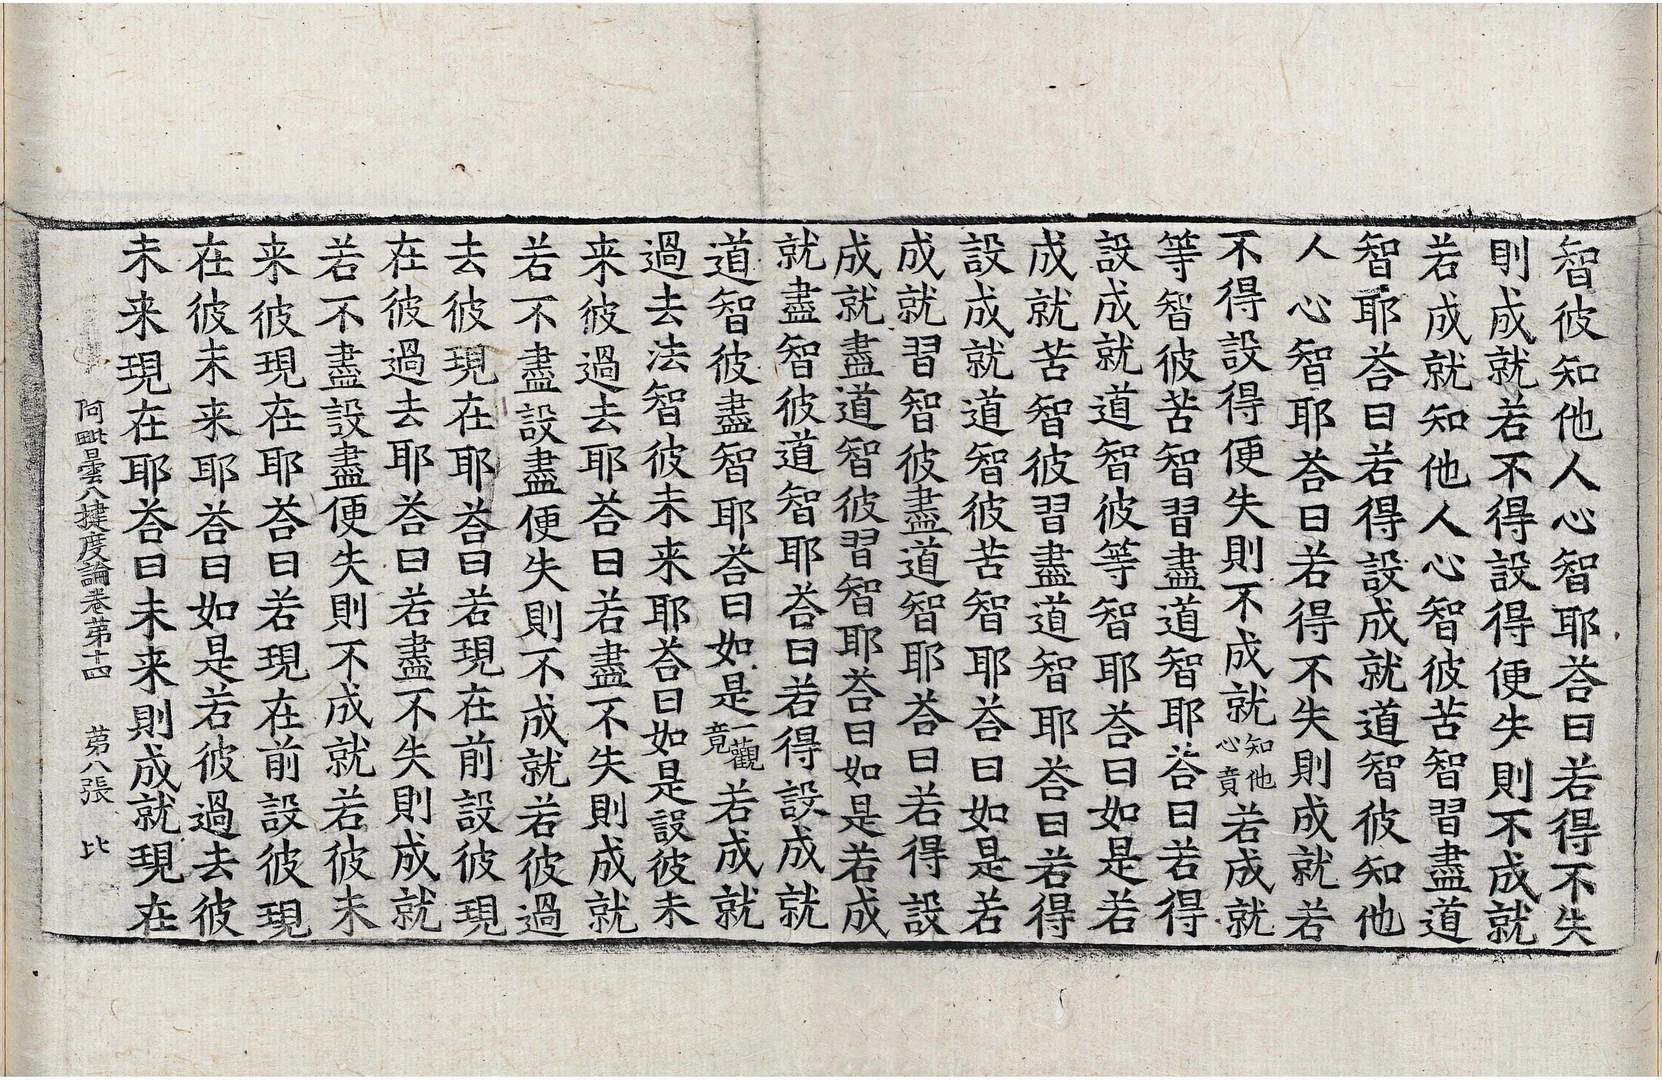 智彼知他人心智耶荅曰若得不失
則成就若不得設得便失則不成就
若成就知他人心智彼苦智習盡道
智耶荅曰若得設成就道智彼知他
人心智耶荅曰若得不失則成就若
不得設得便失則不成就知他心竟若成就
等智彼苦智習盡道智耶荅曰若得
設成就道智彼等智耶荅曰如是若
成就苦智彼習盡道智耶荅曰若得
設成就道智彼苦智耶荅曰如是若
成就習智彼盡道智耶荅曰若得設
成就盡道智彼習智耶荅曰如是若成
就盡智彼道智耶荅曰若得設成就
道智彼盡智耶荅曰如是一觀竟若成就
過去法智彼未来耶荅曰如是設彼未
来彼過去耶荅曰若盡不失則成就
若不盡設盡便失則不成就若彼過
去彼現在耶荅曰若現在前設彼現
在彼過去耶荅曰若盡不失則成就
若不盡設盡便失則不成就若彼未
来彼現在耶荅曰若現在前設彼現
在彼未来耶荅曰如是若彼過去彼
未来現在耶荅曰未来則成就現在
阿毗曇八揵度論卷第十四 第八張 比